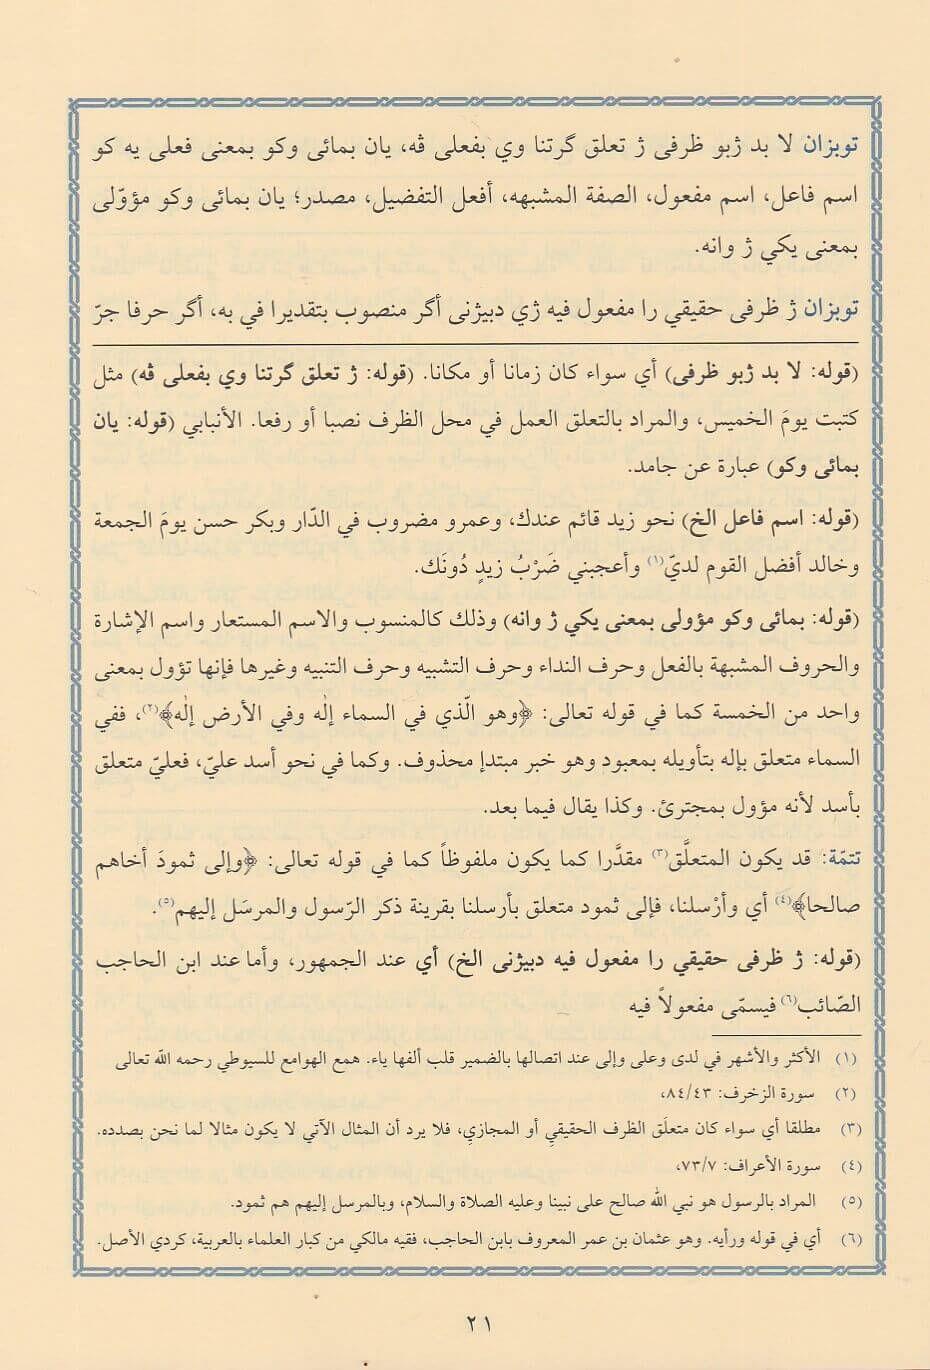 توبزان لا بد ژبو ظرفى ژ تعلق گرتنا وي بفعلى ڤه، يان بمائى وكو بمعنى فعلى يه كو
اسم فاعل، اسم مفعول، الصفة المشبهه، أفعل التفضيل، مصدر؛ يان بمائى وكو مؤوّلى
بمعنى يكي ژ وانه.
توبزان ژ ظرفى حقيقي را مفعول فيه ژي دبيژنى أگر منصوب بتقديرا في به، أگر حرفا جرّ
(قوله: لا بد ژبو ظرفى) أي سواء كان زمانا أو مكانا. (قوله: ژ تعلق گرتنا وي بفعلى ڤه) مثل
كتبت يومَ الخميس، والمراد بالتعلق العمل في محل الظرف نصبا أو رفعا. الأنبابي (قوله: يان
بمائى وكو) عبارة عن جامد.
(قوله: اسم فاعل الخ) نحو زيد قائم عندك، وعمرو مضروب في الدّار وبكر حسن يومَ الجمعة
وخالد أفضل القوم لديّ(١) وأعجبني ضَرْبُ زيدٍ دُونَك.
(قوله: بمائى وكو مؤولى بمعنى يكي ژ وانه) وذلك كالمنسوب والاسم المستعار واسم الإشارة
والحروف المشبهة بالفعل وحرف النداء وحرف التشبيه وحرف التنبيه وغيرها فإنها تؤول بمعنى
واحد من الخمسة كما في قوله تعالى: ﴿وهو الّذي في السماء إلٰه وفي الأرض إلٰه﴾(٢)، ففي
السماء متعلق بإله بتأويله بمعبود وهو خبر مبتدإ محذوف. وكما في نحو أسد عليّ، فعليّ متعلق
بأسد لأنه مؤول بمجترئ. وكذا يقال فيما بعد.
تتمّة: قد يكون المتعلَّق(٣) مقدَّرا كما يكون ملفوظاً كما في قوله تعالى: ﴿وإلى ثمودَ أخاهم
صالحا﴾(٤) أي وأرْسلنا، فإلى ثمود متعلق بأرسلنا بقرينة ذكر الرّسول والمرسَل إليهم(٥).
(قوله: ژ ظرفى حقيقي را مفعول فيه دبيژنى الخ) أي عند الجمهور، وأما عند ابن الحاجب
الصّائب(٦) فيسمّى مفعولاً فيه
(١) الأكثر والأشهر في لدى وعلى وإلى عند اتصالها بالضمير قلب ألفها ياء. همع الهوامع للسيوطي رحمه الله تعالى
(٢) سورة الزخرف: ٨٤/٤٣،
(٣) مطلقا أي سواء كان متعلَق الظرف الحقيقيِ أو المجازي، فلا يرد أن المثال الآتي لا يكون مثالا لما نحن بصدده.
(٤) سورة الأعراف: ٧٣/٧،
(٥) المراد بالرسول هو نبي الله صالح على نبينا وعليه الصلاة والسلام، وبالمرسل إليهم هم ثمود.
(٦) أي في قوله ورأيه. وهو عثمان بن عمر المعروف بابن الحاجب، فقيه مالكي من كبار العلماء بالعربية، كردي الأصل.
٢١